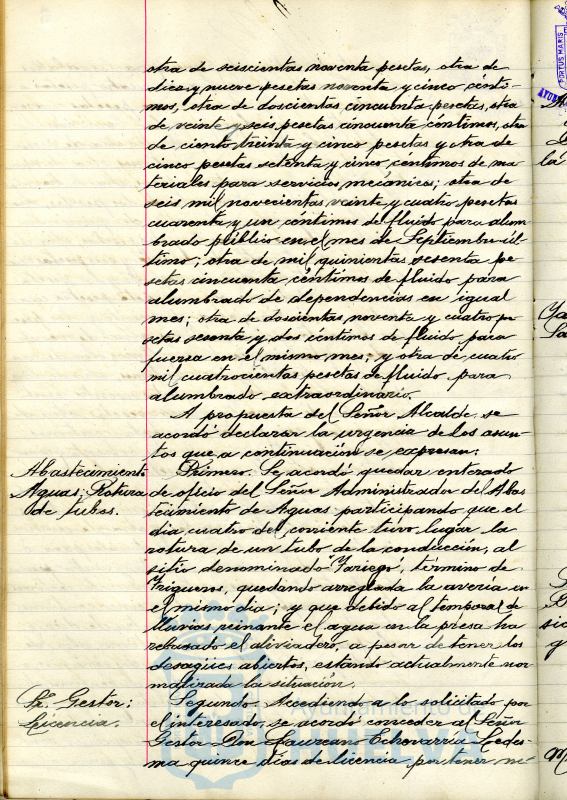 otra de seiscientas noventa pesetas, otra de
diez y nueve pesetas noventa y cinco cénti-
mos, otra de doscientas cincuenta pesetas, otra
de veinte y seis pesetas cincuenta céntimos, otra
de ciento treinta y cinco pesetas y otra de
cinco pesetas setenta y cinco centimos de ma-
teriales para servicios mecánicos; otra de
seis mil novecientas veinte y cuatro pesetas
cuarenta y un céntimos de fluido para alum-
brado público en el mes de Septiembre úl-
timo; otra de mil quinientas sesenta pe-
setas cincuenta céntimos de fluido para
alumbrado de dependencias en igual
mes; otra de doscientas noventa y cuatro pe-
setas sesenta y dos céntimos de fluido para
fuerza en el mismo mes; y otra de cuatro
mil cuatrocientas pesetas de fluido para
alumbrado extraordinario.
A propuesta del Señor Alcalde, se
acordó declarar la urgencia de los asun-
tos que a continuación se expresan:
Abastecimiento
Aguas; Rotura
de tubos.
Primero. Se acordó quedar enterado
de oficio del Señor Administrador del Abas
tecimiento de Aguas participando que el
dia cuatro del corriente tuvo lugar la
rotura de un tubo de la conducción, al
sitio denominado "Fariego", término de
Trigueros, quedando arreglada la avería en
el mismo dia; y que debido al temporal de
lluvias reinante el agua en la presa ha
rebasado el aliviadero, a pesar de tener los
desagües abiertos, estando actualmente nor-
malizada la situación.
Sr. Gestor;
Licencia.
Segundo. Accediendo a lo solicitado por
el interesado, se acordó conceder al Señor
Gestor Don Laureano Echevarría Ledes-
ma quince días de licencia por tener ne-
Ayuntamiento de
HUELVA
PORTUS MARIS